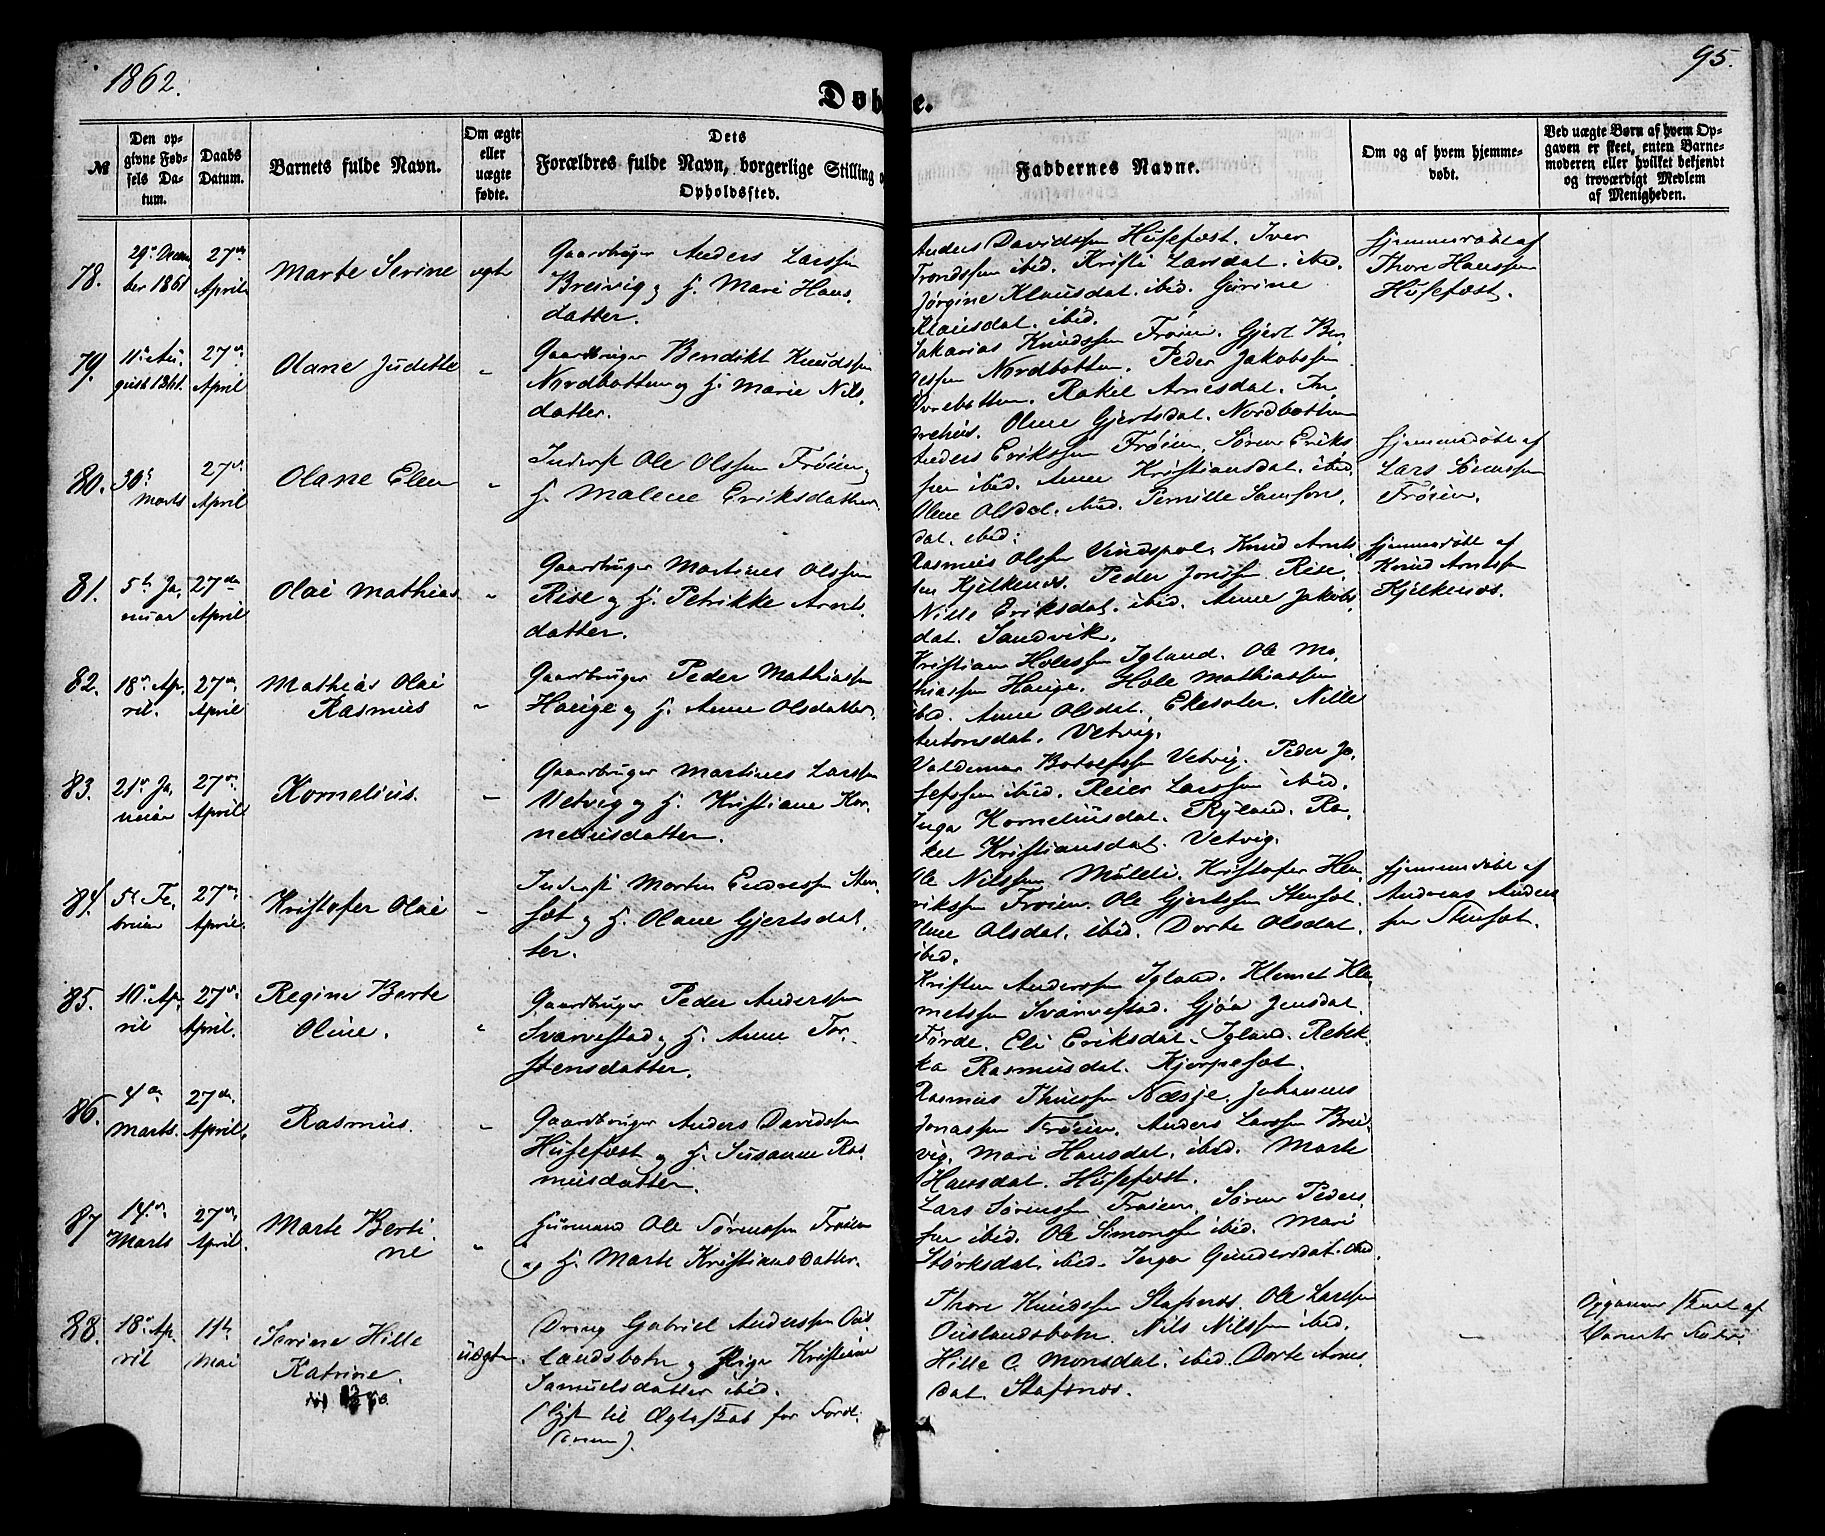 1862.
95.
Døbte.
№
Den op-
givne Fød-
sels Da-
tum.
Daabs
Datum.
Barnets fulde Navn.
Om ægte
eller
uægte
fødte.
Dets
Forældres fulde Navn, borgerlige Stilling o
Opholdssted.
Faddernes Navne.
Om og af hvem hjemme-
døbt.
Ved uægte Børn af hvem Op-
gaven er skeet, enten Barne-
moderen eller hvilket bekjendt
og troværdigt Medlem
af Menigheden.
78.
29de Decem
ber 1861
27de
April
Marte Serine
egte
Gaardbruger Anders Larssen
Breivig og H. Mari Hans
datter.
Anders Davidssen Husefæst. Iver
Trondssen ibid. Kristi Larsdat. ibid.
Jørgine Klausdat. ibid. Gurine
Klausdat. ibid.
Hjemmedøbt af
Thore Hanssen
Husefæst.
79.
11te Au
gust 1861.
27de
April
Olane Juditte
"
Gaardbruger Bendikt Knudssen
Nordbotten og H. Marie Nils
datter.
Sakarias Knudssen Frøien. Gjert Ber
gessen Nordbotten. Peder Jakobssen
Rakel Arnesdat. In
drehus. Oline Gjertsdat. Nordbotten
80.
30te
Marts
27de
April
Olane Elen
"
Inderst Ole Olssen Frøien og
H. Malene Eriksdatter.
Anders Erikssen Frøien. Søren Eriks
sen ibid. Anne Kristiansdat. ibid.
Oline Olsdat. ibid. Pernille Samsons
dat. ibid.
Hjemmedøbt af
Lars Sørenssen
Frøien.
81.
5te Ja
nuar
27de
April
Olai Mathias
"
Gaardbruger Martines Olssen
Rise og H. Petrikke Arnts
datter.
Rasmus Olssen Vindspol. Knud Arnts
sen Hjelkenes. Peder Jonssen Rise.
Nille Eriksdat. ibid. Anne Jakobs
dat. Sandvik.
Hjemmedøbt af
Knud Arntssen
Hjelkenes.
82.
18de Ap
ril.
27de
April
Mathias Olai
Rasmus
"
Gaardbruger Peder Mathiassen
Hauge og H. Anne Olsdatter.
Kristian Holessen Igland. Ole Ma
thiassen Hauge. Hole Mathiassen
ibid. Anne Olsdat. Nille
Antonsdat. Vetvig.
83.
21de Ja
nuar
27de
April
Kornelius.
"
Gaardbruger Martines Larssen
Vetvig og H. Kristiane Kor
neliusdatter.
Valdemar Botolfssen Vetvig. Peder Jo
sefssen ibid. Reier Larssen ibid.
Inga Korneliusdat. Ryland. Ra
kel Kristiansdat. Vetvig.
84.
5te Fe
bruar
27de
April.
Kristofer Olai
"
Inderst Morten Endressen Sten
sæt og H. Olane Gjertsdat
ter.
Ole Nilssen Kristofer Hen
rikssen Frøien. Ole Gjertssen Stensæt.
Oline Olsdat. ibid. Dorte Olsdat.
ibid.
Hjemmedøbt af
Andreas Anders
sen Stensæt.
85.
10de Ap
ril
27de
April.
Regine Berte
Oline.
"
Gaardbruger Peder Anderssen
Svarvestad og H. Anne Tor
stensdatter.
Kristen Anderssen Igland. Klemet Kle
metssen Svarvestad. Gjøa Jensdat.
Førde. Eli Eriksdat. Igland. Rebek
ka Rasmusdat. Kjerpesæt.
86.
4de
Marts.
27de
April.
Rasmus.
"
Gaardbruger Anders Davidssen
Husefæst og H. Susanne Ras
musdatter.
Rasmus Thuessen Næsje. Johannes
Jonassen Frøien. Anders Larssen Brei
vig. Mari Hansdat. ibid. Marte
Hansdat. Husefæst.
87
14de
Marts
27de
April.
Marte Berti
ne
"
Husmand Ole Sørenssen Frøien
og H. Marte Kristiansdatter.
Lars Sørenssen Frøien. Søren Peders
sen ibid. Ole Simonssen ibid. Mari
Størksdat. ibid. Inger Gundersdat. ibid.
88.
18de Ap
ril
11te
Mai
Serine Hille
Katrine.
uægte
Dreng Gabriel Anderssen Ous
landsbotn og Pige Kristiane
Samuelsdatter ibid.
(lyst til Ægteskab for Foræl
drene).
Thore Knudssen Stafsnes. Ole Larssen
Ouslandsbotn. Nils Nilssen ibid.
Hille C. Monsdat. ibid. Dorte Arnes
dat. Stafsnes.
–
Opgaven skeet af
Barnets Fader